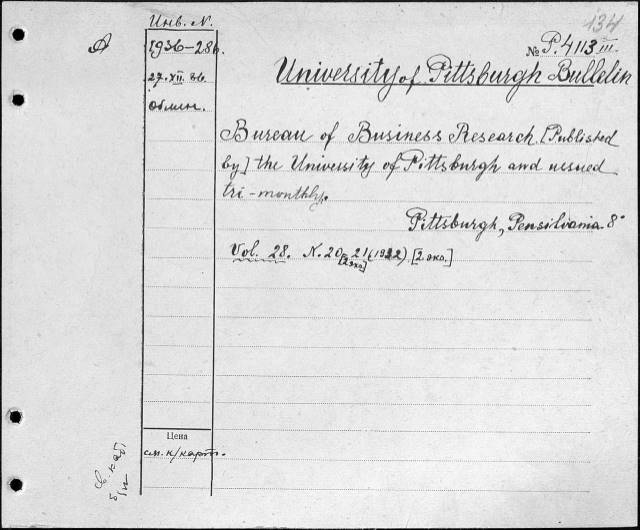 134
Инв. N.
А
1936-286.
№ P.4113 III.
University of Pittsburgh Bulletin
27.XII.36
Обмен.
Bureau of Business Research. [Published
by] the University of Pittsburgh and issued
tri-monthly.
Pittsburgh, Pensilvania 8°
Vol. 28. N. 20, 21 (1932) [2 экз.]
[2 экз]
Цена
см. к/карт.